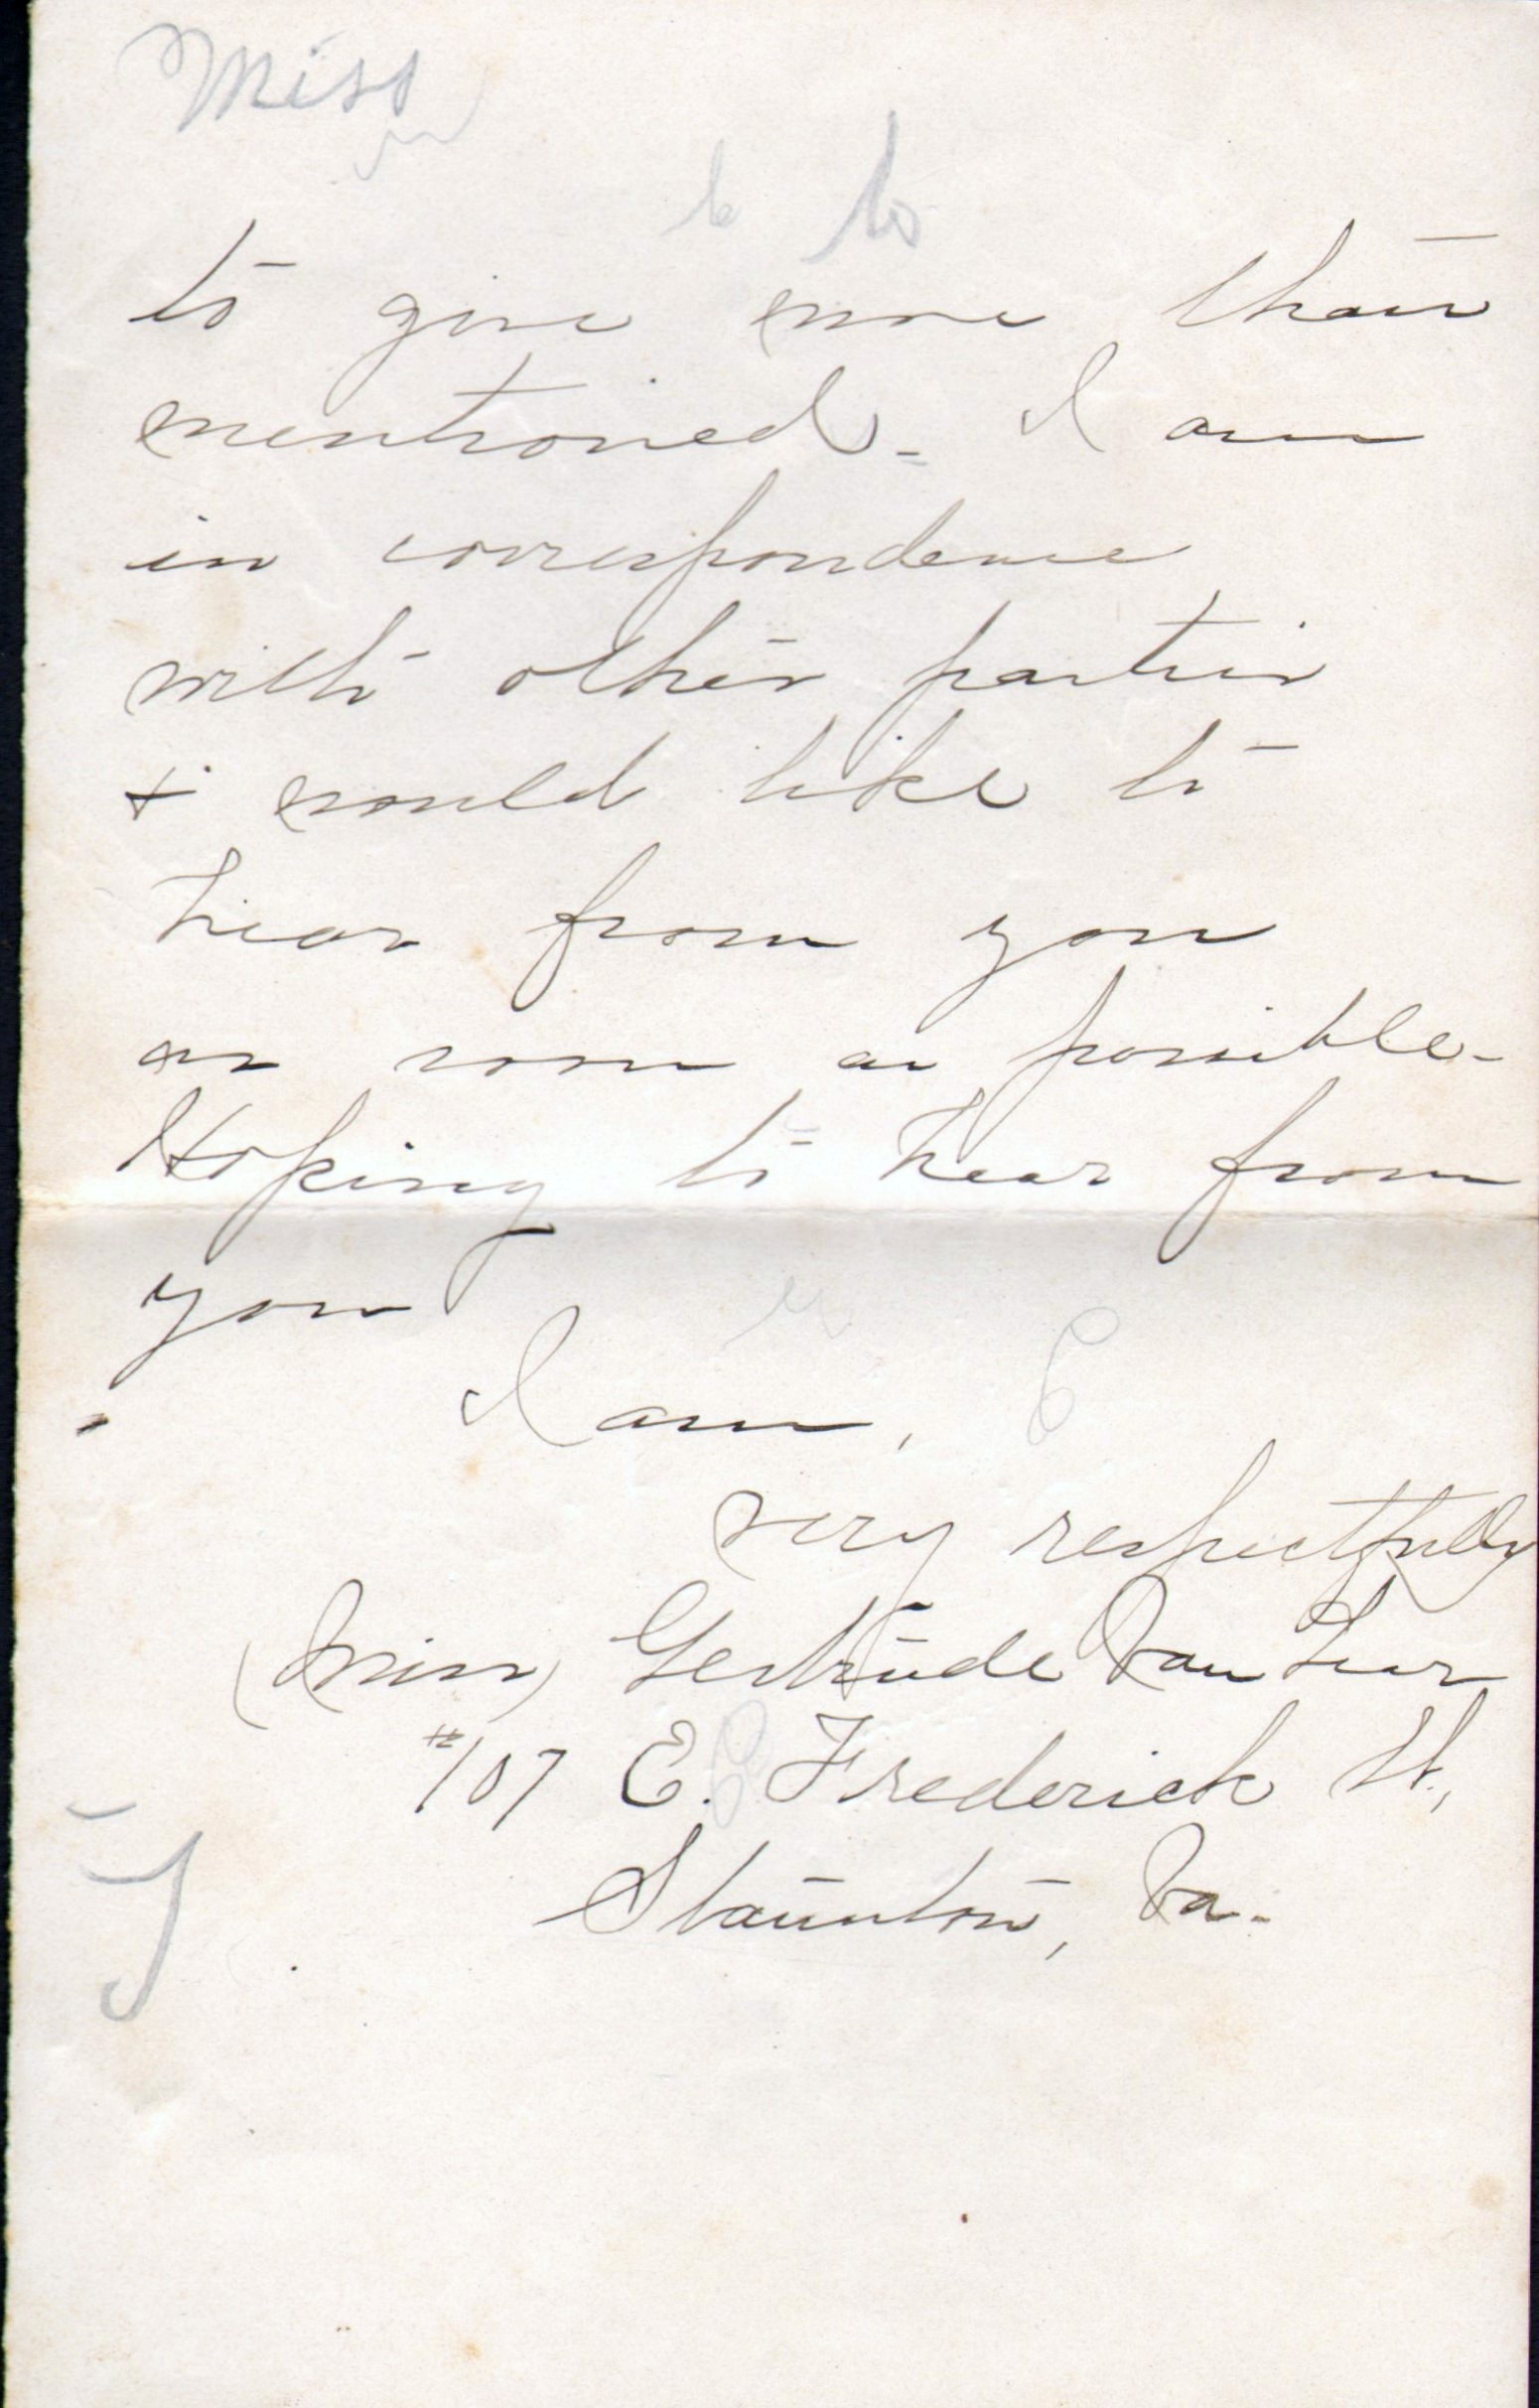 Miss
to to
to give more than
mentioned. I am
in correspondence
with other parties
& would like to
hear from you
as soon as possible.
Hoping to hear from
you
I am,
very respectfully
(Miss) Gertrude Van Lear
#107 E. Frederick St.,
Staunton, Va.